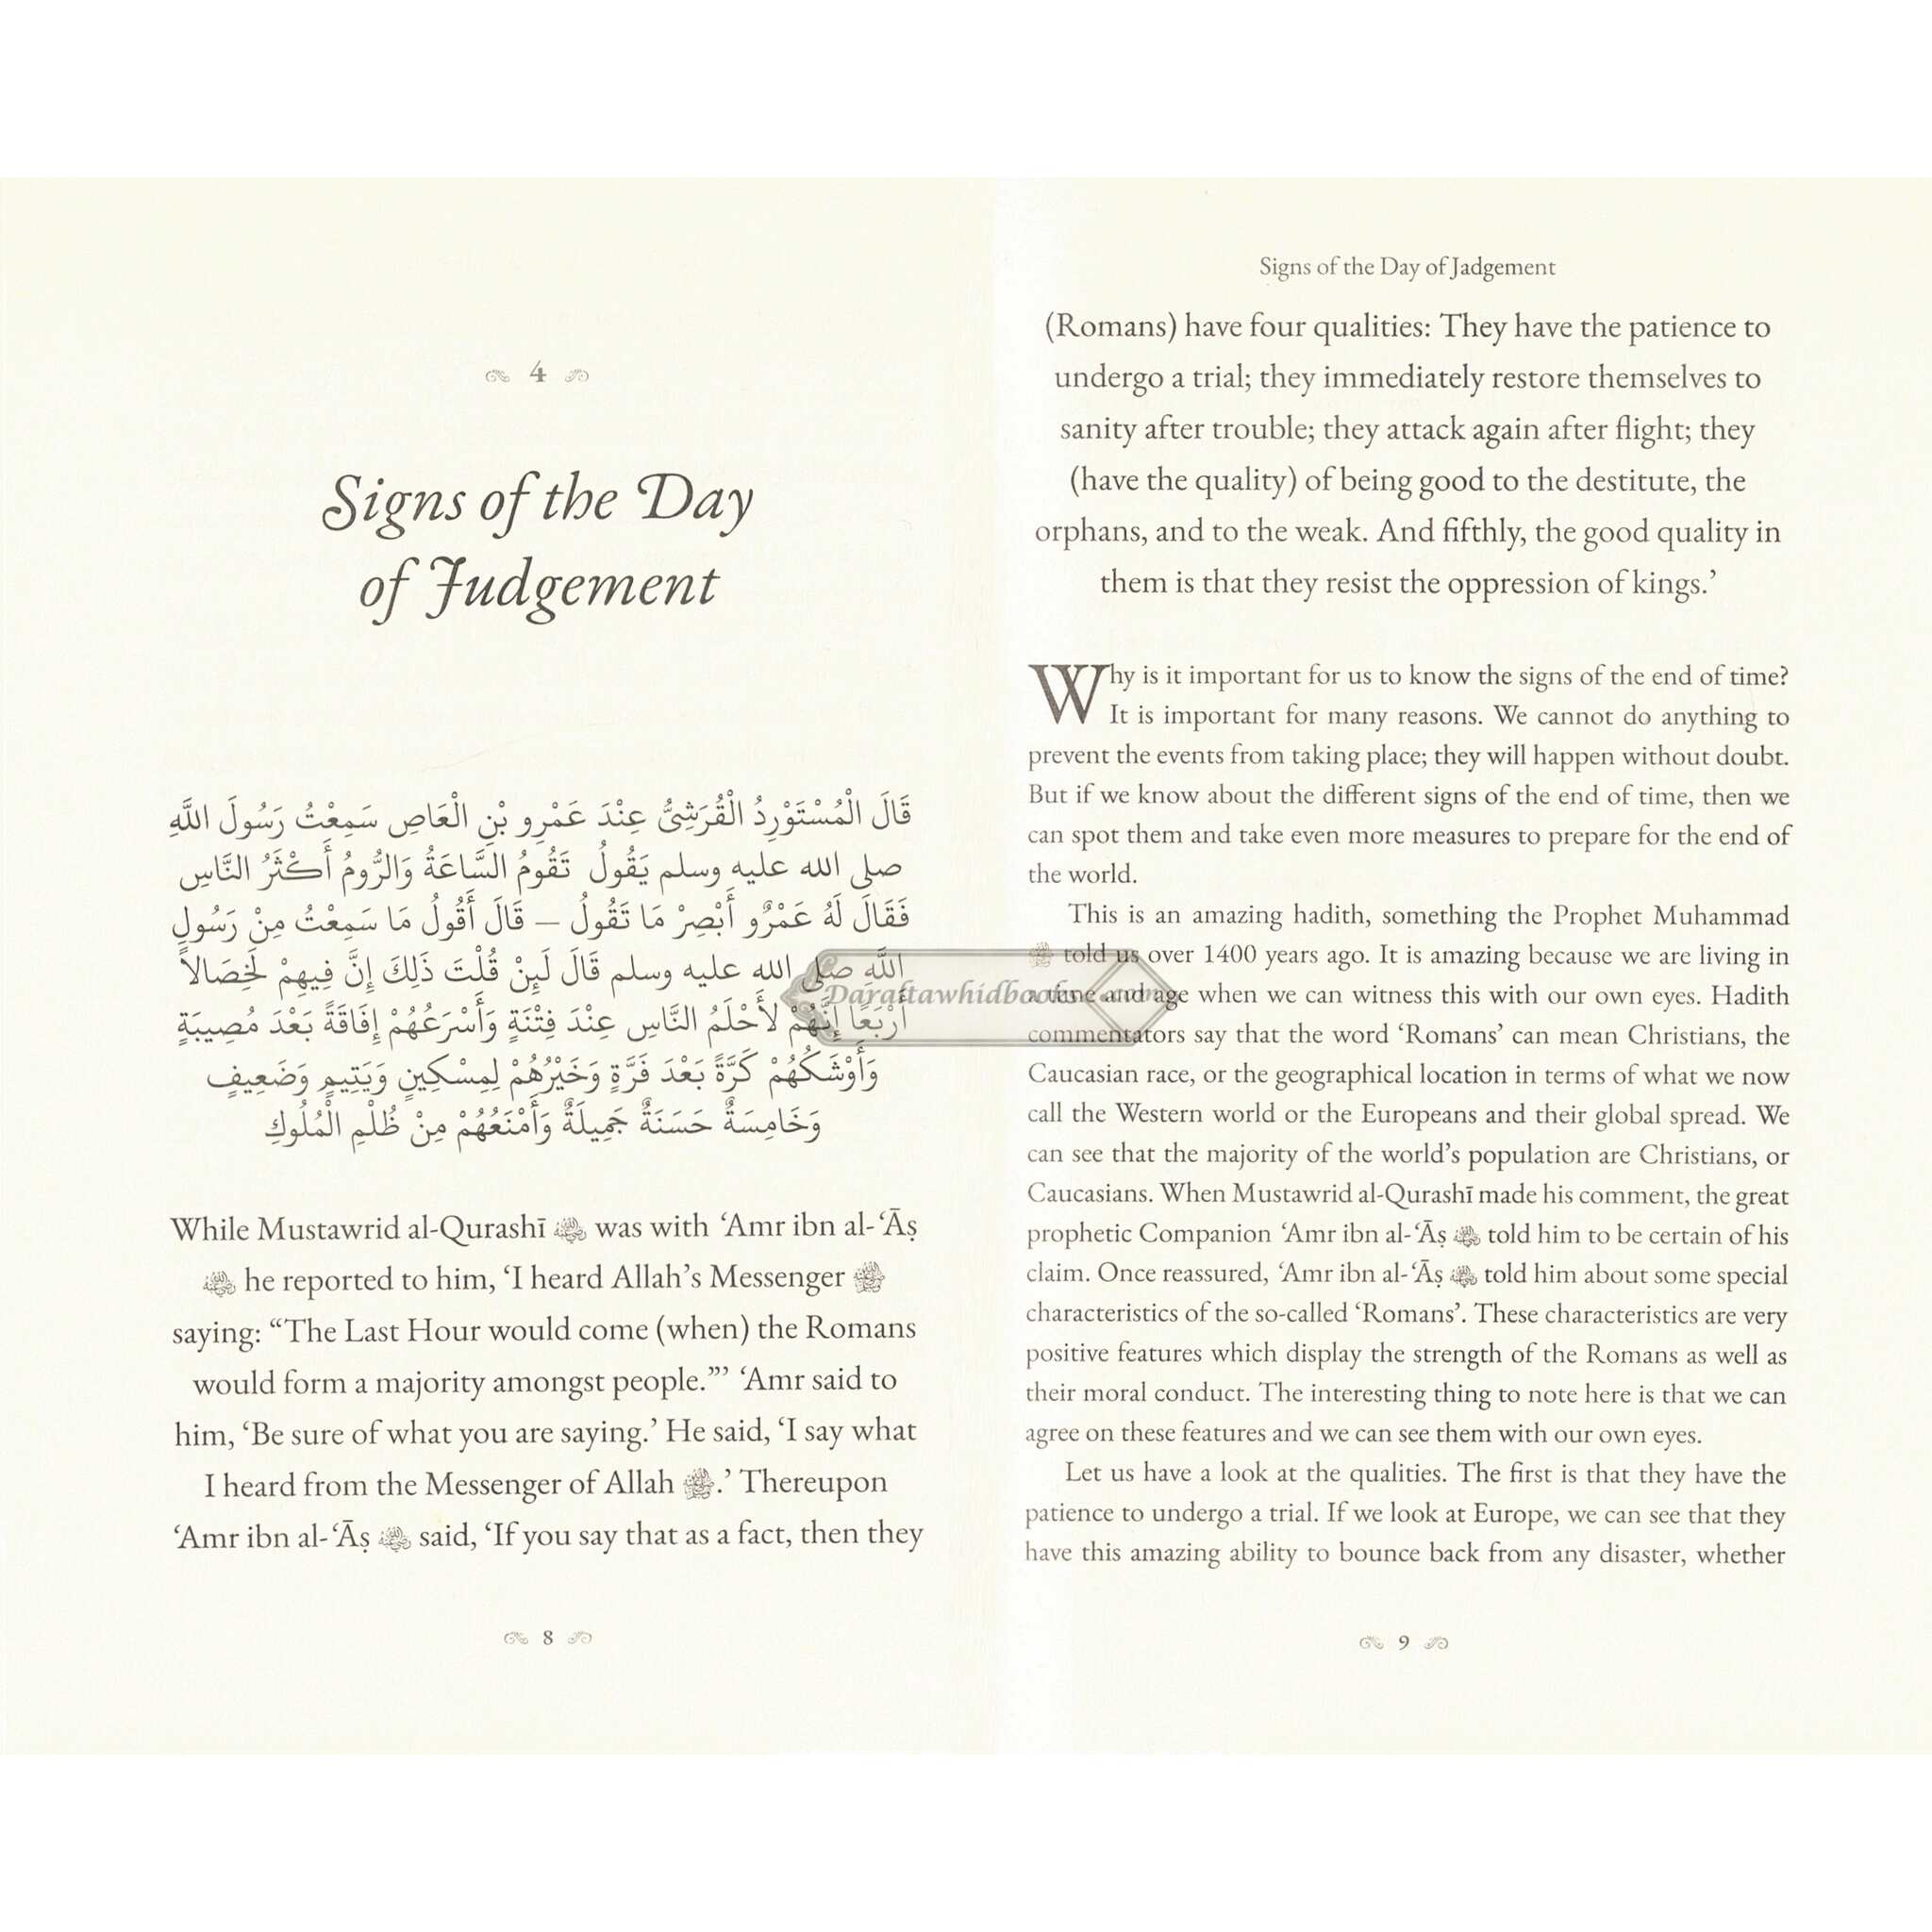 4
Signs of the Day
of Judgement
قَالَ الْمُسْتَوْرِدُ الْقُرَشِيُّ عِنْدَ عَمْرِو بْنِ الْعَاصِ سَمِعْتُ رَسُولَ اللَّهِ
صلى الله عليه وسلم يَقُولُ تَقُومُ السَّاعَةُ وَالرُّومُ أَكْثَرُ النَّاسِ
فَقَالَ لَهُ عَمْرٌو أَبْصِرْ مَا تَقُولُ – قَالَ أَقُولُ مَا سَمِعْتُ مِنْ رَسُولِ
اللَّهِ صلى الله عليه وسلم قَالَ لَئِنْ قُلْتَ ذَلِكَ إِنَّ فِيهِمْ لَخِصَالاً
أَرْبَعًا إِنَّهُمْ لأَحْلَمُ النَّاسِ عِنْدَ فِتْنَةٍ وَأَسْرَعُهُمْ إِفَاقَةً بَعْدَ مُصِيبَةٍ
وَأَوْشَكُهُمْ كَرَّةً بَعْدَ فَرَّةٍ وَخَيْرُهُمْ لِمِسْكِينٍ وَيَتِيمٍ وَضَعِيفٍ
وَخَامِسَةٌ حَسَنَةٌ جَمِيلَةٌ وَأَمْنَعُهُمْ مِنْ ظُلْمِ الْمُلُوكِ
While Mustawrid al-Qurashī was with ‘Amr ibn al-‘Āṣ
he reported to him, ‘I heard Allah’s Messenger ﷺ
saying: “The Last Hour would come (when) the Romans
would form a majority amongst people.”’ ‘Amr said to
him, ‘Be sure of what you are saying.’ He said, ‘I say what
I heard from the Messenger of Allah ﷺ.’ Thereupon
‘Amr ibn al-‘Āṣ said, ‘If you say that as a fact, then they
8
Signs of the Day of Jadgement
(Romans) have four qualities: They have the patience to
undergo a trial; they immediately restore themselves to
sanity after trouble; they attack again after flight; they
(have the quality) of being good to the destitute, the
orphans, and to the weak. And fifthly, the good quality in
them is that they resist the oppression of kings.’
Why is it important for us to know the signs of the end of time?
It is important for many reasons. We cannot do anything to
prevent the events from taking place; they will happen without doubt.
But if we know about the different signs of the end of time, then we
can spot them and take even more measures to prepare for the end of
the world.
This is an amazing hadith, something the Prophet Muhammad
ﷺ told us over 1400 years ago. It is amazing because we are living in
a time and age when we can witness this with our own eyes. Hadith
commentators say that the word ‘Romans’ can mean Christians, the
Caucasian race, or the geographical location in terms of what we now
call the Western world or the Europeans and their global spread. We
can see that the majority of the world’s population are Christians, or
Caucasians. When Mustawrid al-Qurashī made his comment, the great
prophetic Companion ‘Amr ibn al-‘Āṣ told him to be certain of his
claim. Once reassured, ‘Amr ibn al-‘Āṣ told him about some special
characteristics of the so-called ‘Romans’. These characteristics are very
positive features which display the strength of the Romans as well as
their moral conduct. The interesting thing to note here is that we can
agree on these features and we can see them with our own eyes.
Let us have a look at the qualities. The first is that they have the
patience to undergo a trial. If we look at Europe, we can see that they
have this amazing ability to bounce back from any disaster, whether
9
Daraftawhidbooks.com